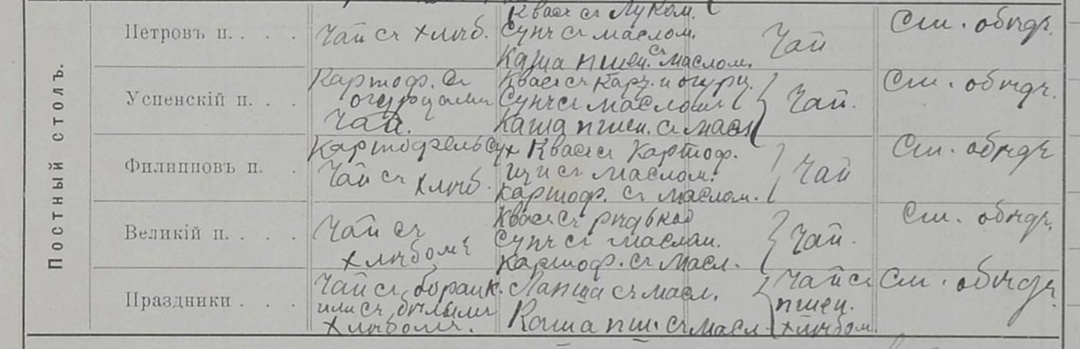 Постный столъ.
Петровъ п. . . .
Чай съ хлѣб.
Квасъ съ Луком.
Супъ съ маслом.
Каша пшен. съ маслом.
Чай
См. обѣдъ.
Успенскій п. . . .
Картоф. съ
огурцами
Чай.
Квасъ съ карт. и огурц.
Супъ съ маслом
Каша пшен. съ масл
Чай.
См. обѣдъ.
Филипповъ п. .
Картофель сух
Чай съ хлѣб.
Квасъ съ Картоф.
щи съ маслом.
картоф. съ маслом.
Чай
См. обѣдъ
Великій п. . . .
Чай съ
хлѣбомъ
Квасъ съ рѣдькой
Супъ съ маслом.
картоф. съ масл.
Чай.
См. обѣдъ.
Праздники . . .
Чай съ
или съ бѣлымъ
хлѣбомъ.
Лапша съ масл.
Каша пш. съ масл.
Чай съ
пшен.
хлѣбом.
См. обѣдъ.